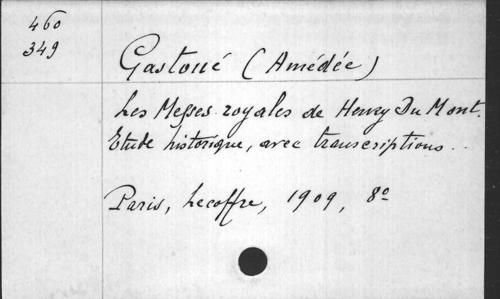 460
349
Gastoué (Amédée)
Les Messes royales de Henry Du Mont.
Etude historique, avec transcriptions..
Paris, Lecoffre, 1909, 8º